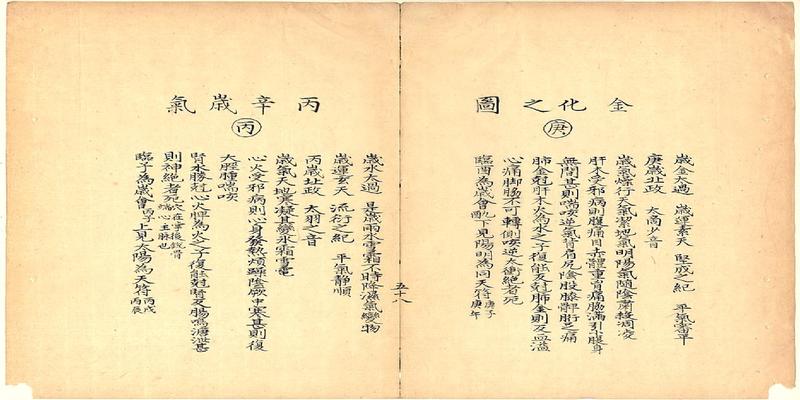 金化之圖
庚
歲金太過　歲運素天　堅成之紀　平氣審平
庚歲北政　太商少音
歲氣燥行天氣潔地氣明陽氣隨陰肅殺凋零
肝木受邪病則腹痛目赤體重胷痛脇滿引小腹耳
無聞甚則喘咳逆氣背肩尻陰股膝髀胻足痛
肺金尅肝木火為木之子復能尅肺金則反血溢
心痛脚脇不可轉側咳逆太衝絕者死
臨酉為歲會乙酉下見陽明為同天符庚子庚午
五十八
丙辛歲氣
丙
歲水太過　是歲雨水雪霜不時降濕氣變物
歲運玄天　流衍之紀　平氣靜順
丙歲北政　太羽之音
歲氣天地寒凝其變氷霜雪雹
心火受邪病則心身發熱煩躁陰厥中寒甚則復
大脛腫喘咳
腎水勝尅心火脾為火之子復能尅腎反腸鳴溏泄甚
則神絕者死穴在掌後銳骨端心主脉也
臨子為歲會丙子上見太陽為天符丙戌丙辰